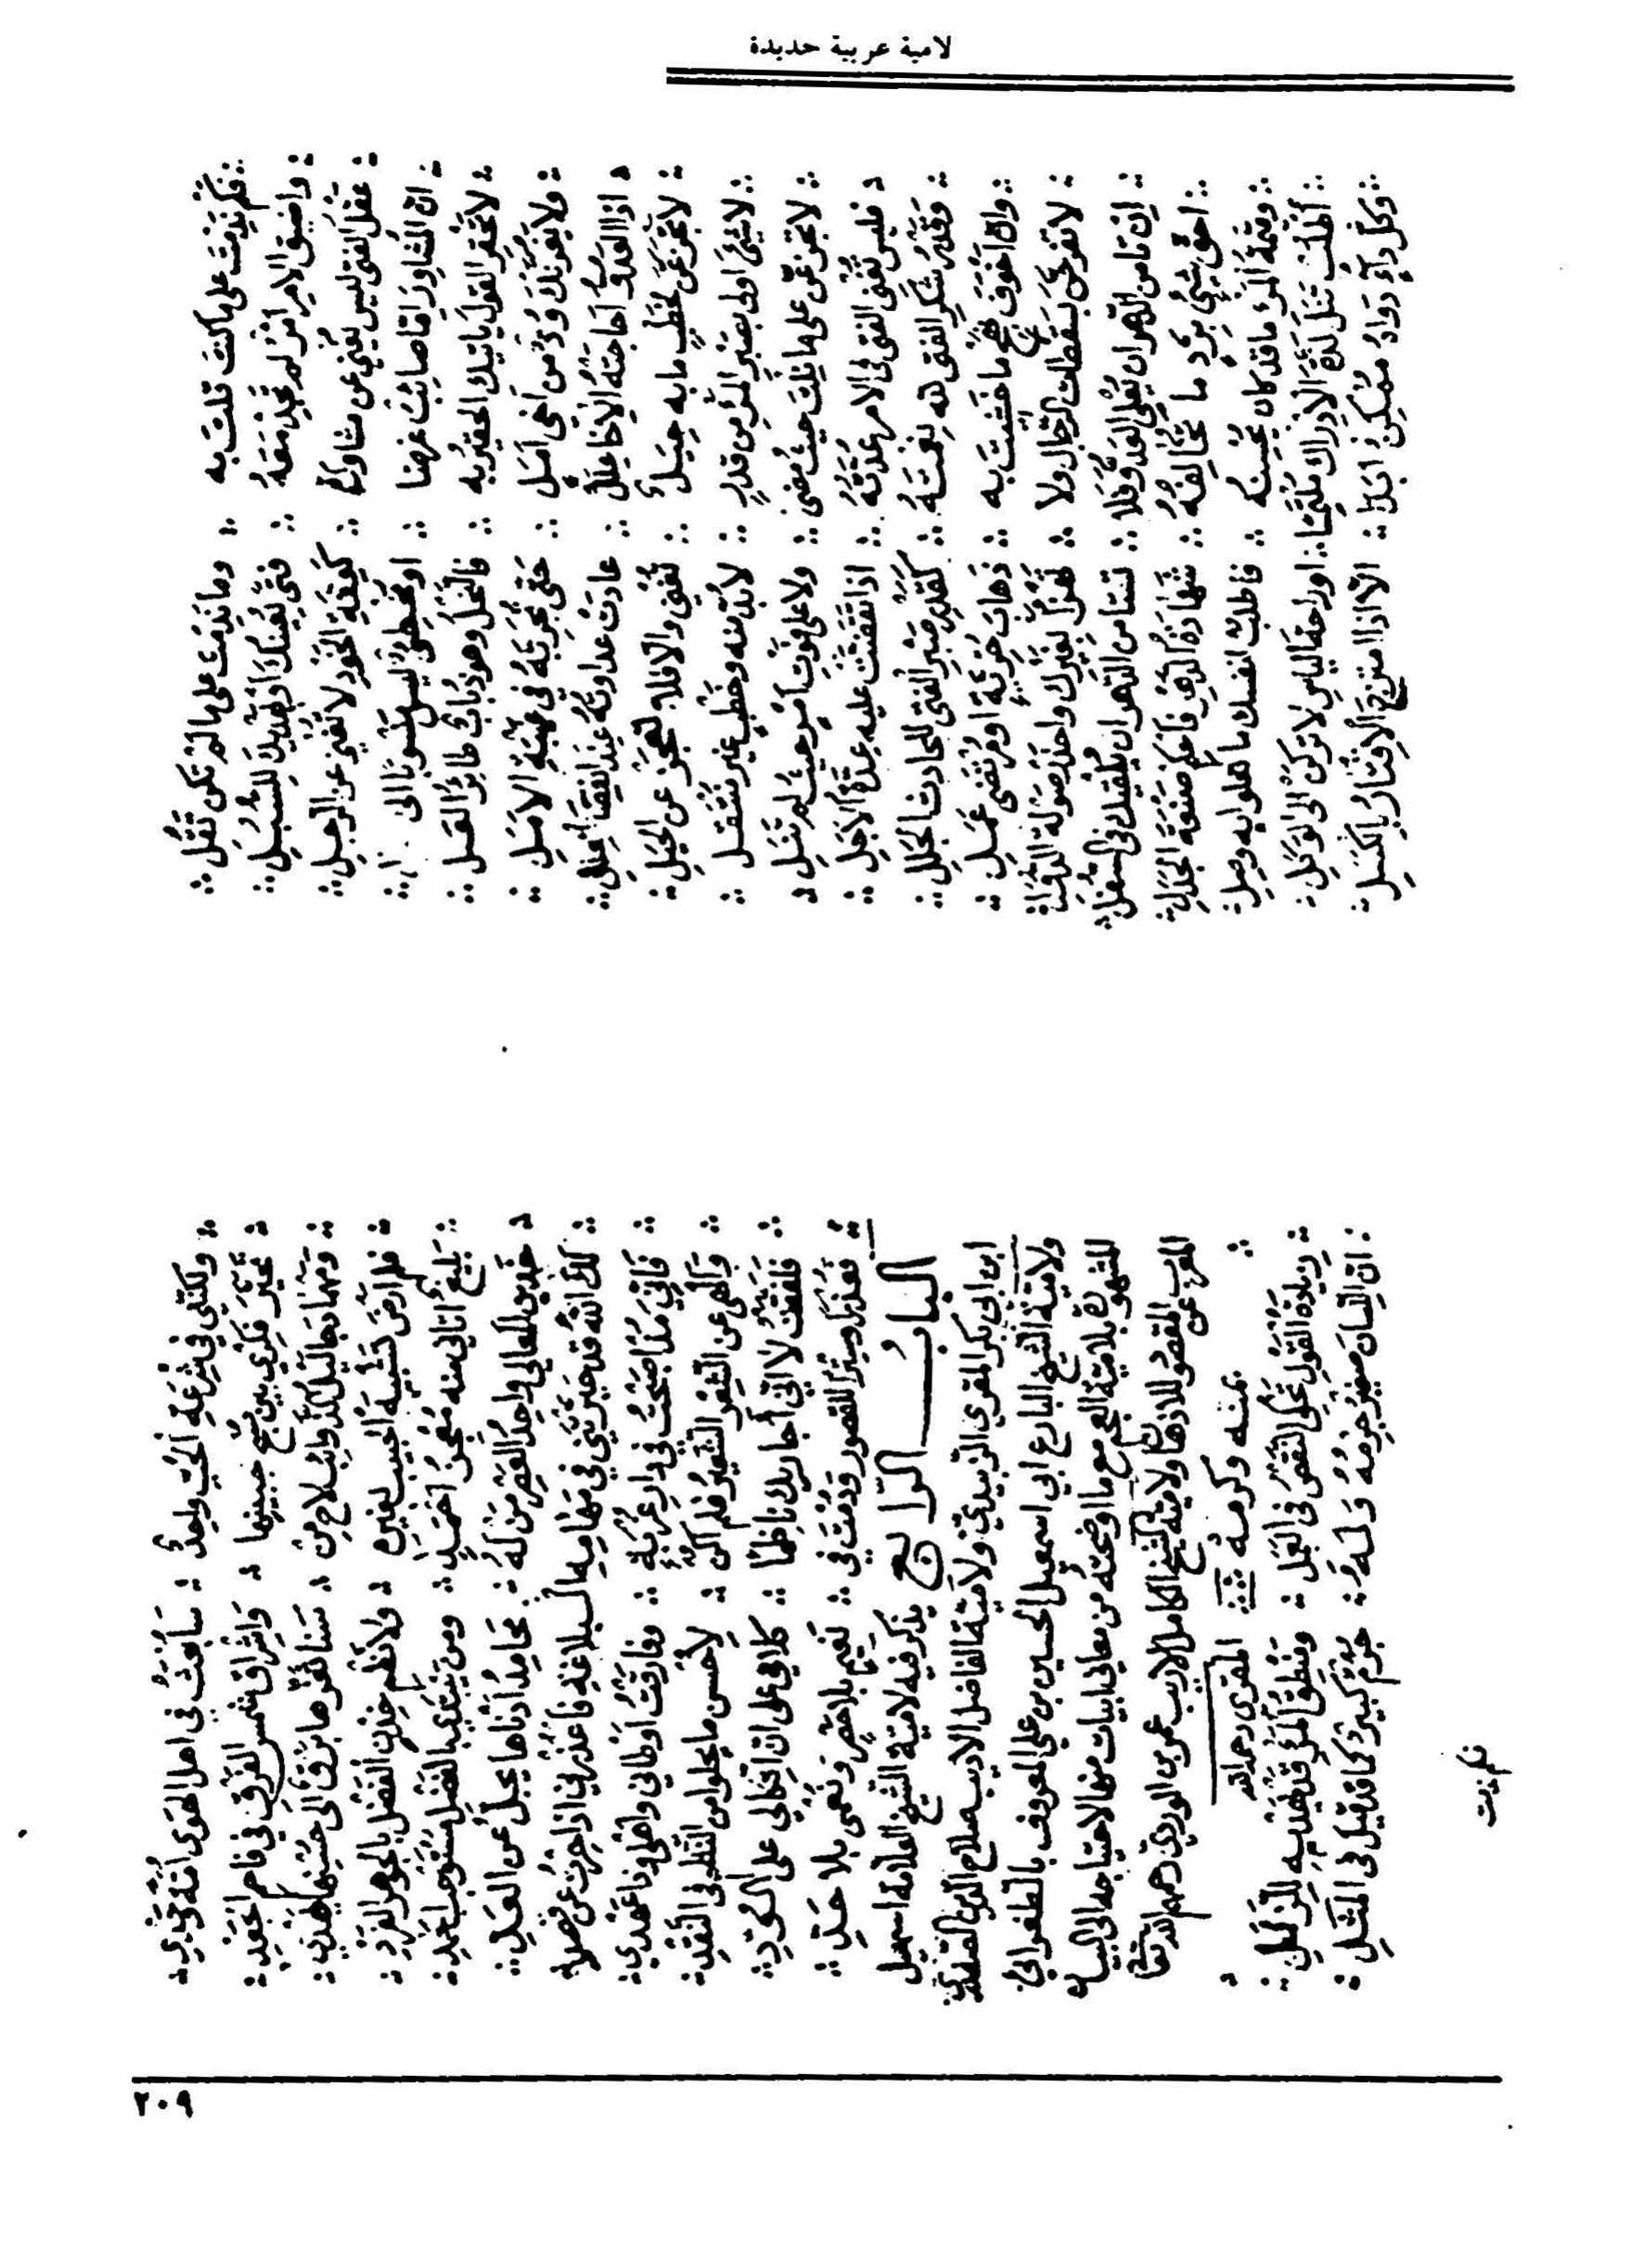 لامية عربية جديدة
ولكنني في شرعة الحب واحد ∴ سابعث في اهل الهوى امة وحدي ∴
تحير فكري بين صبح جبينها ∴ واشراق شمس الفرق في فاحم الجعد ∴
ومهما دجا ليل الذوائب لاح من ∴ سنا ثغرها برق الى حسنها يهدي ∴
فلم ارض تشبيه الحبيب بغيره ∴ ولا نظم خدن الفضل بالجوهر الفرد ∴
بليغ اتاني منه معجز احمد ∴ ومن يبتدي بالفضل مستوجب الحمد ∴
خدين المعالي واحد العصر من له ∴ محامد ادناها يجل عن العد ∴
لك الله قد حيرتني في مهامه البلاغة فاعذرني اذا حرت عن
فاني مذ اصبحت في دار غربة ∴ وفارقت اوطاني واهلي وذا عهدي ∴
والهى عن الشعر الشعير فلم اكن ∴ لاحسن ما يحلوا من النظم في النقد ∴
فلفقت لا اني اجاريك ناظما ∴ كلامي على ان اتكالي على الود ∴
فعذرا وسترا للقصور ودمت في ∴ نعيم بلا حصر ونعمى بلا حد ∴
الباب الرابع يذكر فيه لامية الشيخ العلامة اسمعيل
ابن ابي بكر المقري الزبيدي ولامية الفاضل الاديب صلاح الدين الصفدي
ولامية الشيخ البارع ابي اسمعيل الحسين بن علي المعروف بالطغرائي
المشهورة بلامية العجم مع ما اوضحته من معاني ابيات منها لاحتياجها الى البيان
المعرب عن المقصود للاذهان ولامية الشيخ الكامل الاديب عمر بن الوردي رحمهم الله تعالى
بمنه وكرمه المقري رحمه الله
زيادة القول تحكي النقص في العمل ∴ ومنطق المرء قد يهديه للزلل ∴
ان اللسان صغير جرمه وله ∴ جرم كبير كما قد قيل في المثل ∴
فكم ندمت
فكم ندمت على ما كنت قلت به ∴ وما ندمت على ما لم تكن تقل ∴
واضيق الامر امر لم تجد معه ∴ فتى يعينك او يهديك للسبل ∴
عقل الفتى ليس يغني عن مشاورة ∴ كعفة الخود لا تغني عن الرجل ∴
ان المشاور اما صائب غرضا ∴ او مخطئ ليس منسوبا الى
لا تحقر القول ياتيك الحقير به ∴ فالنحل وهو ذباب طائر العسل ∴
ولا يغرنك ود من اخي امل ∴ حتى تجربه في غيبة الامل ∴
اذا العدو احاجته الاخا علل ∴ عادت عداوته عند انقضا العلل ∴
لا تجزعن لخطب ما به حيل ∴ تغني والا فلا تعجز عن الحيل ∴
لا شئ اولى بصبر المرء من قدر ∴ لا بد منه وخطب غير منتقل ∴
لا تجزعن على ما نلت حيث مضى ∴ ولا على فوت امر حيث لم تنل ∴
فليس تغني الفتى في الامر عدته ∴ اذا تقضت عليه عدة الاجل ∴
وقدر شكر الفتى لله نعمته ∴ كقدر صبر الفتى للحادث الجلل ∴
وان اخوف نهج ما خشيت به ∴ ذهاب حرية او مرتضى عمل ∴
لا تفرحن بسقطات الرجال ولا ∴ تهزأ بغيرك واحذر صولة الدول
ان تامن الدهر ان يعلي العدو فلا ∴ تستامن الدهر ان يلقيك في السفل ∴
احق شئ برد ما تخالفه ∴ شهادة الدهر فاحكم صنعة الجدل ∴
وقيمة المرء ما قد كان يحسنه ∴ فاطلب لنفسك ما تعلو به وصل ∴
اطلب تنل لذة الادراك ملتمسا ∴ او راحة الياس لا تركن الى الوكل ∴
وكل دآء دواه ممكن ابدا ∴ الا اذا امتزج الاقتار بالكسل ∴
٢٠٩